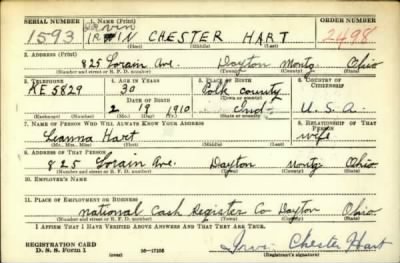 SERIAL NUMBER 1. NAME (Print) ORDER NUMBER
1593 IRVIN CHESTER HART 2498
(First) (Middle) (Last)
2. ADDRESS (Print)
825 Lorain Ave. Dayton Montg Ohio
(Number and street or R. F. D. number) (Town) (County) (State)
3. TELEPHONE 4. AGE IN YEARS 5. PLACE OF BIRTH 6. COUNTRY OF CITIZENSHIP
KE 5829 30 Polk County
DATE OF BIRTH (Town or county)
2 19 1910 U.S.A.
(Mo.) (Day) (Yr.) (State or country)
7. NAME OF PERSON WHO WILL ALWAYS KNOW YOUR ADDRESS 8. RELATIONSHIP OF THAT PERSON
Leanna Hart wife
(Mr., Mrs., Miss) (First) (Middle) (Last)
9. ADDRESS OF THAT PERSON
825 Lorain Ave. Dayton Montg Ohio
(Number and street or R. F. D. number) (Town) (County) (State)
10. EMPLOYER'S NAME
11. PLACE OF EMPLOYMENT OR BUSINESS
National Cash Register Co Dayton Ohio
(Number and street or R. F. D. number) (Town) (County) (State)
I AFFIRM THAT I HAVE VERIFIED ABOVE ANSWERS AND THAT THEY ARE TRUE.
REGISTRATION CARD
D. S. S. Form 1 16-17105 Irvin Chester Hart
(Registrant's signature)